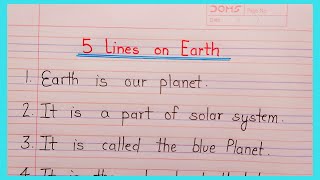 DOMS
5 Lines on Earth
1. Earth is our planet.
2. It is a part of solar system.
3. It is called the blue Planet.
4. It is the